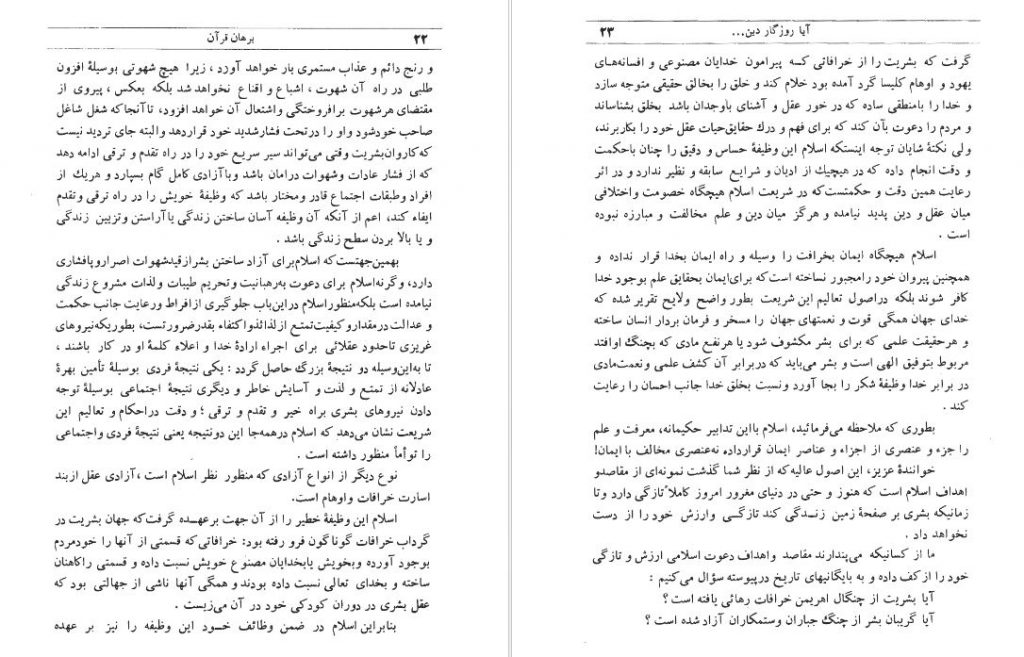 ۲۲ برهان قرآن
و رنج دائم و عذاب مستمری بار خواهد آورد، زیرا هیچ شهوتی بوسیلهٔ افزون
طلبی در راه آن شهوت، اشباع و اقناع نخواهد شد بلکه بعکس، پیروی از
مقتضای هر شهوت برافروختگی و اشتعال آن خواهد افزود، تا آنجا که شغل شاغل
صاحب خود شود و او را در تحت فشار شدید خود قرار دهد و البته جای تردید نیست
که کاروان بشریت وقتی می‌تواند سیر سریع خود را در راه تقدم و ترقی ادامه دهد
که از فشار عادات و شهوات در امان باشد و با آزادی کامل گام بسپارد و هر یك از
افراد و طبقات اجتماع قادر و مختار باشد که وظیفهٔ خویش را در راه ترقی و تقدم
ایفاء کند، اعم از آنکه آن وظیفه آسان ساختن زندگی یا آراستن و تزیین زندگی
و یا بالا بردن سطح زندگی باشد .
بهمین جهتست که اسلام برای آزاد ساختن بشر از قید شهوات اصرار و پافشاری
دارد، و گرنه اسلام برای دعوت به رهبانیت و تحریم طیبات و لذات مشروع زندگی
نیامده است بلکه منظور اسلام در این باب جلوگیری از افراط و رعایت جانب حکمت
و عدالت در مقدار و کیفیت تمتع از لذائذ و اکتفاء بقدر ضرورتست، بطوریکه نیروهای
غریزی تا حدود عقلائی برای اجراء ارادهٔ خدا و اعلاء کلمهٔ او در کار باشند ،
تا به این وسیله دو نتیجهٔ بزرگ حاصل گردد : یکی نتیجهٔ فردی بوسیلهٔ تأمین بهرهٔ
عادلانه از تمتع و لذت و آسایش خاطر و دیگری نتیجهٔ اجتماعی بوسیلهٔ توجه
دادن نیروهای بشری براه خیر و تقدم و ترقی ؛ و دقت در احکام و تعالیم این
شریعت نشان می‌دهد که اسلام در همه جا این دو نتیجه یعنی نتیجهٔ فردی و اجتماعی
را توأماً منظور داشته است .
نوع دیگر از انواع آزادی که منظور نظر اسلام است ، آزادی عقل از بند
اسارت خرافات و اوهام است.
اسلام این وظیفهٔ خطیر را از آن جهت بر عهـده گرفت که جهان بشریت در
گرداب خرافات گوناگون فرو رفته بود: خرافاتی که قسمتی از آنها را خود مردم
بوجود آورده و بخویش یا بخدایان مصنوع خویش نسبت داده و قسمتی را کاهنان
ساخته و بخدای تعالی نسبت داده بودند و همگی آنها ناشی از جهالتی بود که
عقل بشری در دوران کودکی خود در آن می‌زیست .
بنابراین اسلام در ضمن وظائف خـود این وظیفه را نیز بر عهده
آیا روزگار دین... ۲۳
گرفت که بشریت را از خرافاتی کـه پیرامون خدایان مصنوعی و افسانه‌های
یهود و اوهام کلیسا گرد آمده بود خلاص کند و خلق را بخالق حقیقی متوجه سازد
و خدا را با منطقی ساده که در خور عقل و آشنای با وجدان باشد بخلق بشناساند
و مردم را دعوت بآن کند که برای فهم و درك حقایق حیات عقل خود را بکار برند،
ولی نکتهٔ شایان توجه اینستکه اسلام این وظیفهٔ حساس و دقیق را چنان با حکمت
و دقت انجام داده که در هیچیك از ادیان و شرایع سابقه و نظیر ندارد و در اثر
رعایت همین دقت و حکمتست که در شریعت اسلام هیچگاه خصومت و اختلافی
میان عقل و دین پدید نیامده و هرگز میان دین و علم مخالفت و مبارزه نبوده
است .
اسلام هیچگاه ایمان بخرافت را وسیله و راه ایمان بخدا قرار نداده و
همچنین پیروان خود را مجبور نساخته است که برای ایمان بحقایق علم بوجود خدا
کافر شوند بلکه در اصول تعالیم این شریعت بطور واضح و لایح تقریر شده که
خدای جهان همگی قوت و نعمتهای جهان را مسخر و فرمان بردار انسان ساخته
و هر حقیقت علمی که برای بشر مکشوف شود یا هر نفع مادی که بچنگ او افتد
مربوط بتوفیق الهی است و بشر می‌باید که در برابر آن کشف علمی و نعمت مادی
در برابر خدا وظیفهٔ شکر را بجا آورد و نسبت بخلق خدا جانب احسان را رعایت
کند .
بطوری که ملاحظه می‌فرمائید، اسلام با این تدابیر حکیمانه، معرفت و علم
را جزء و عنصری از اجزاء و عناصر ایمان قرار داده نه عنصری مخالف با ایمان!
خوانندهٔ عزیز، این اصول عالیه که از نظر شما گذشت نمونه‌ای از مقاصد و
اهداف اسلام است که هنوز و حتی در دنیای مغرور امروز کاملاً تازگی دارد و تا
زمانیکه بشری بر صفحهٔ زمین زنـدگی کند تازگـی و ارزش خود را از دست
نخواهد داد .
ما از کسانیکه می‌پندارند مقاصد و اهداف دعوت اسلامی ارزش و تازگی
خود را از کف داده و به بایگانیهای تاریخ در پیوسته سؤال می‌کنیم :
آیا بشریت از چنگال اهریمن خرافات رهائی یافته است ؟
آیا گریبان بشر از چنگ جباران و ستمکاران آزاد شده است ؟